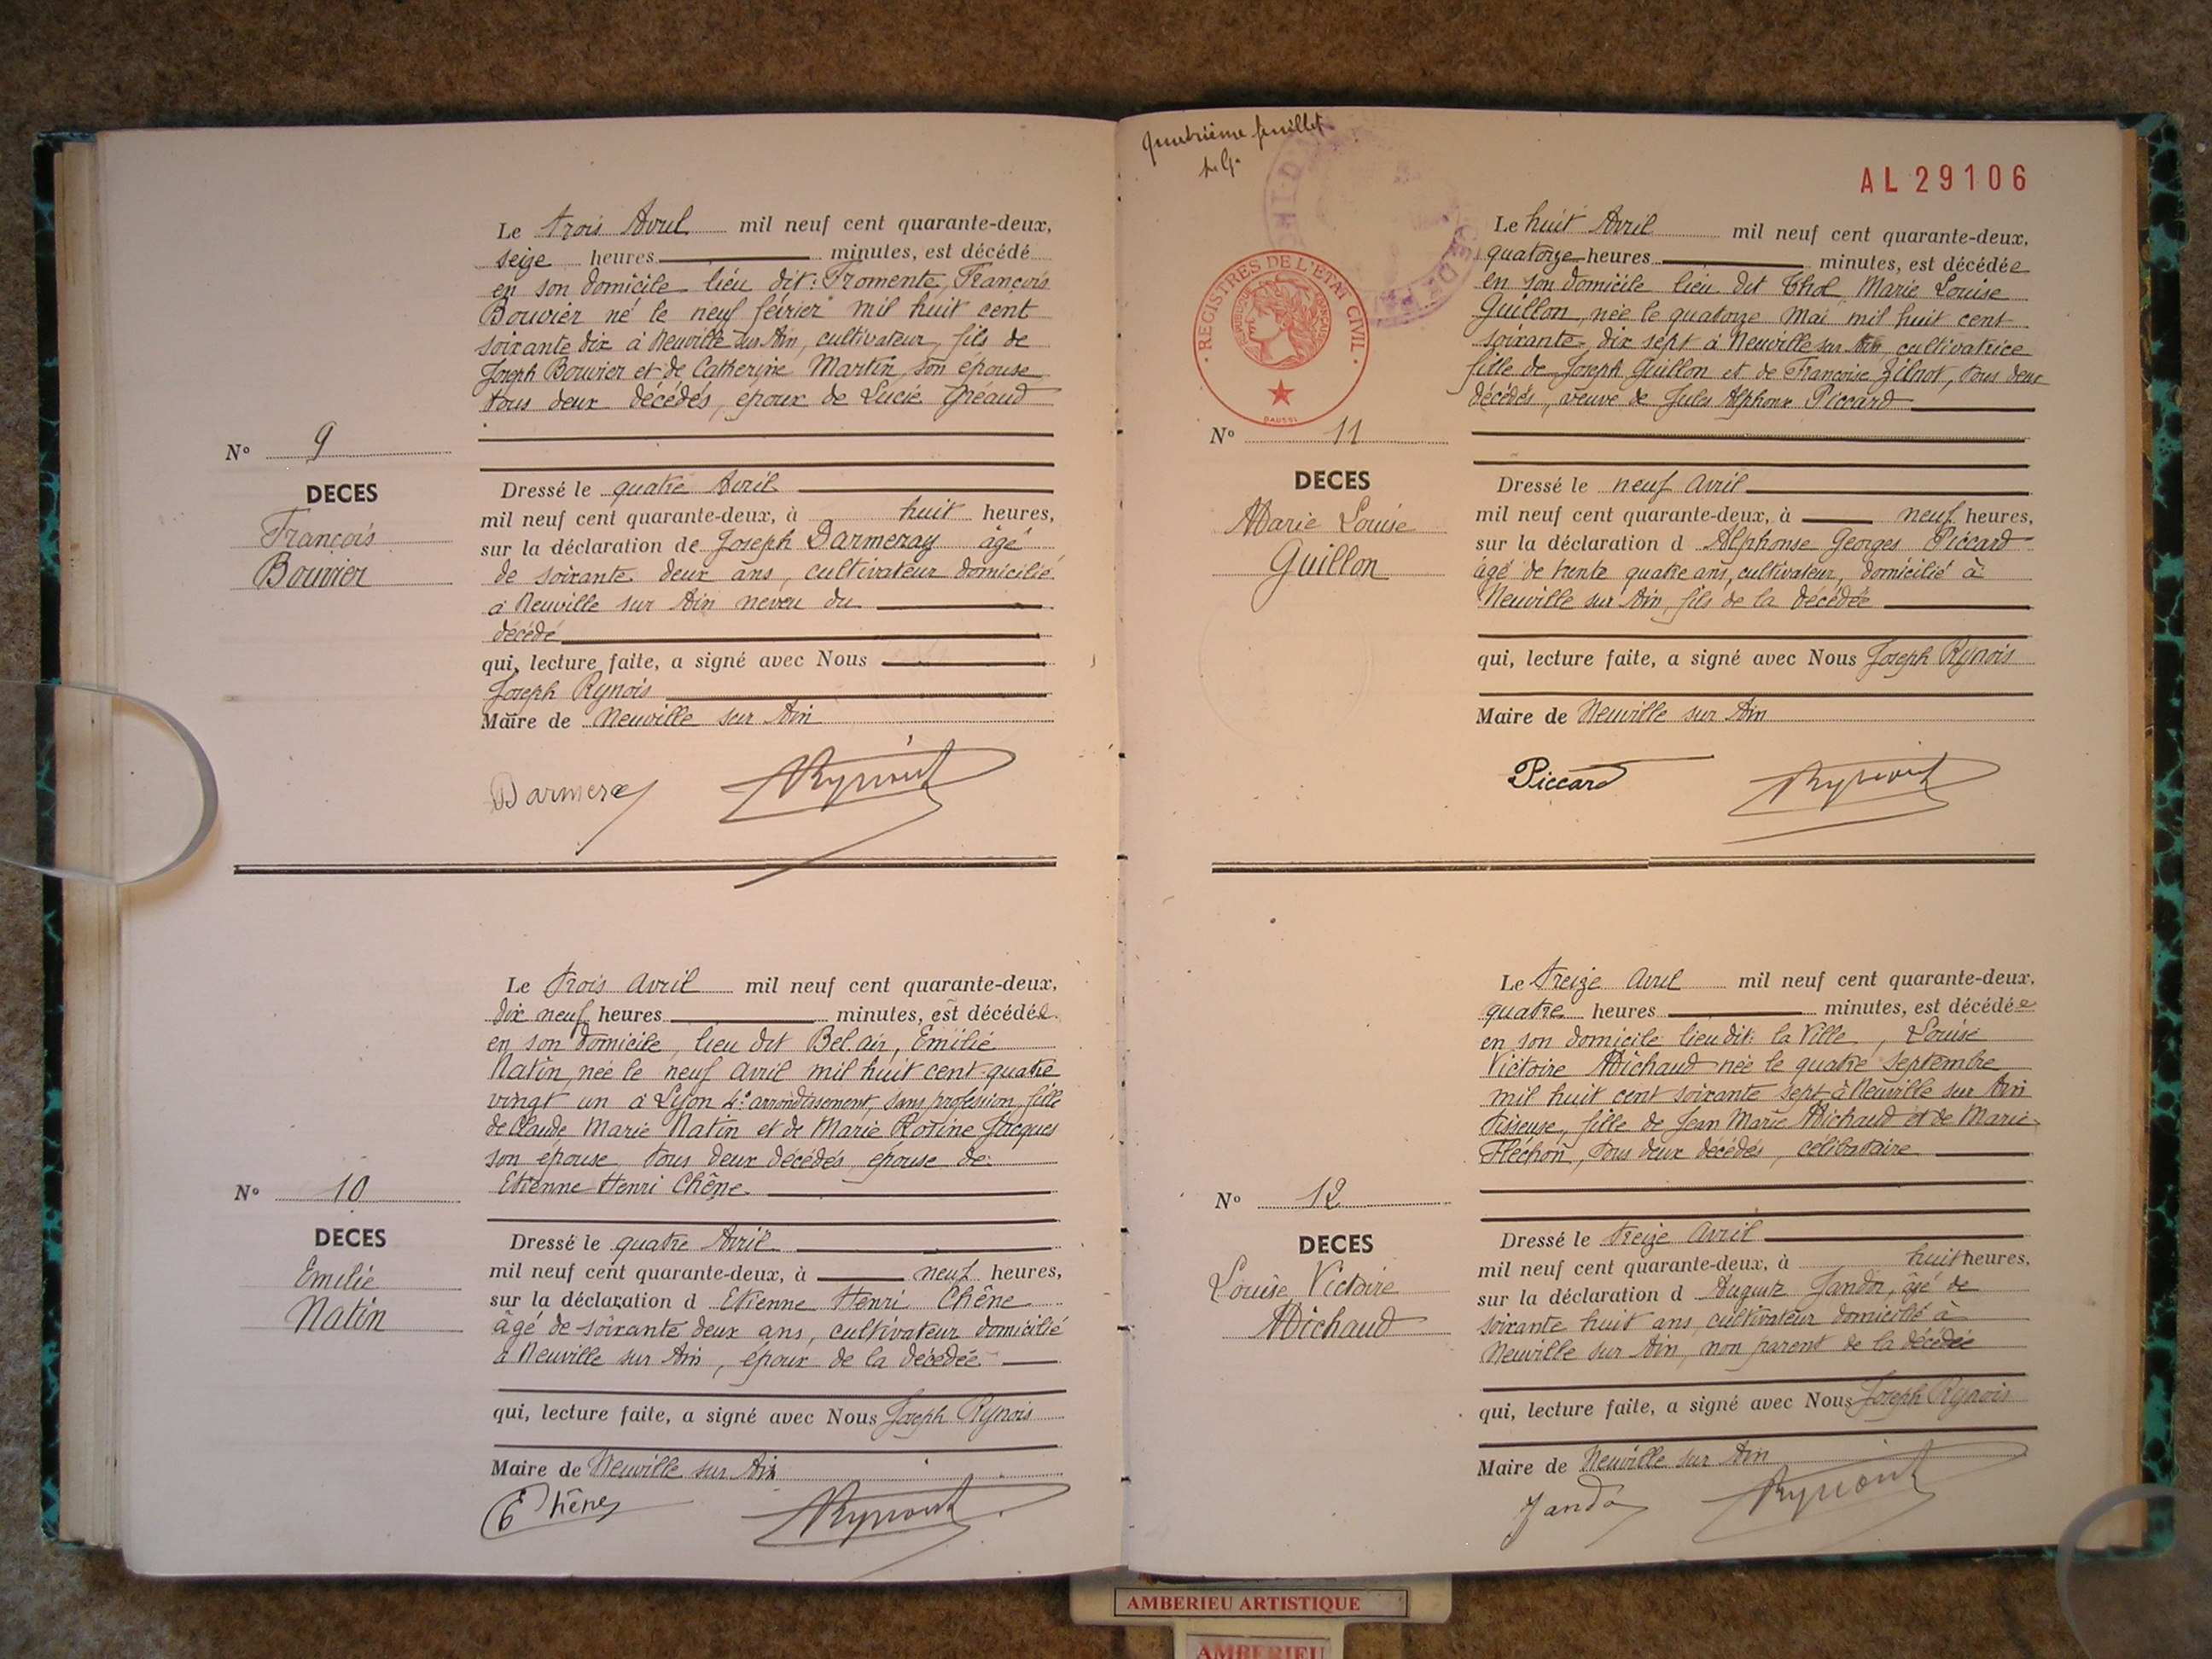 Le trois Avril mil neuf cent quarante-deux,
seize heures minutes, est décédé
en son domicile lieu dit: Fromente, François
Bouvier né le neuf février mil huit cent
soixante dix à Neuville sur Ain, cultivateur, fils de
Joseph Bouvier et de Catherine Martin, son épouse
tous deux décédés, époux de Lucie Gréaud
N° 9
DECES
François
Bouvier
Dressé le quatre Avril
mil neuf cent quarante-deux, à huit heures,
sur la déclaration de Joseph Darmeray âgé
de soixante deux ans, cultivateur domicilié
à Neuville sur Ain neveu du
décédé
qui, lecture faite, a signé avec Nous
Joseph Rynois
Maire de Neuville sur Ain
Darmeray
Le trois avril mil neuf cent quarante-deux,
dix neuf heures minutes, est décédée
en son domicile, lieu dit Bel air, Emilie
Natin, née le neuf avril mil huit cent quatre
vingt un à Lyon 4e arrondissement, sans profession, fille
de Claude Marie Natin et de Marie Rosine Jacques
son épouse, tous deux décédés, épouse de
Etienne Henri Chêne
N° 10
DECES
Emilie
Natin
Dressé le quatre Avril
mil neuf cent quarante-deux, à neuf heures,
sur la déclaration d Etienne Henri Chêne
âgé de soixante deux ans, cultivateur domicilié
à Neuville sur Ain, époux de la décédée
qui, lecture faite, a signé avec Nous Joseph Rynois
Maire de Neuville sur Ain
E Chêne
quatrième feuillet
AL 29106
REGISTRES DE L'ETAT CIVIL
Le huit Avril mil neuf cent quarante-deux,
quatorze heures minutes, est décédée
en son domicile lieu dit Thol, Marie Louise
Guillon, née le quatorze Mai mil huit cent
soixante dix sept à Neuville sur Ain cultivatrice
fille de Joseph Guillon et de Françoise, tous deux
décédés, veuve de Jules Alphonse Piccard
N° 11
DECES
Marie Louise
Guillon
Dressé le neuf avril
mil neuf cent quarante-deux, à neuf heures,
sur la déclaration d Alphonse Georges Piccard
âgé de trente quatre ans, cultivateur, domicilié à
Neuville sur Ain, fils de la décédée
qui, lecture faite, a signé avec Nous Joseph Rynois
Maire de Neuville sur Ain
Piccard
Le treize avril mil neuf cent quarante-deux,
quatre heures minutes, est décédée
en son domicile lieu dit: la Ville, Louise
Victoire Michaud née le quatre septembre
mil huit cent soixante sept à Neuville sur Ain
tisseuse, fille de Jean Marie Michaud et de Marie
Fléchon, tous deux décédés, célibataire
N° 12
DECES
Louise Victoire
Michaud
Dressé le treize avril
mil neuf cent quarante-deux, à huit heures,
sur la déclaration d Jandot, âgé de
soixante huit ans, cultivateur domicilié à
Neuville sur Ain, non parent de la décédée
qui, lecture faite, a signé avec Nous Joseph Rynois
Maire de Neuville sur Ain
AMBERIEU ARTISTIQUE
AMBERIEU